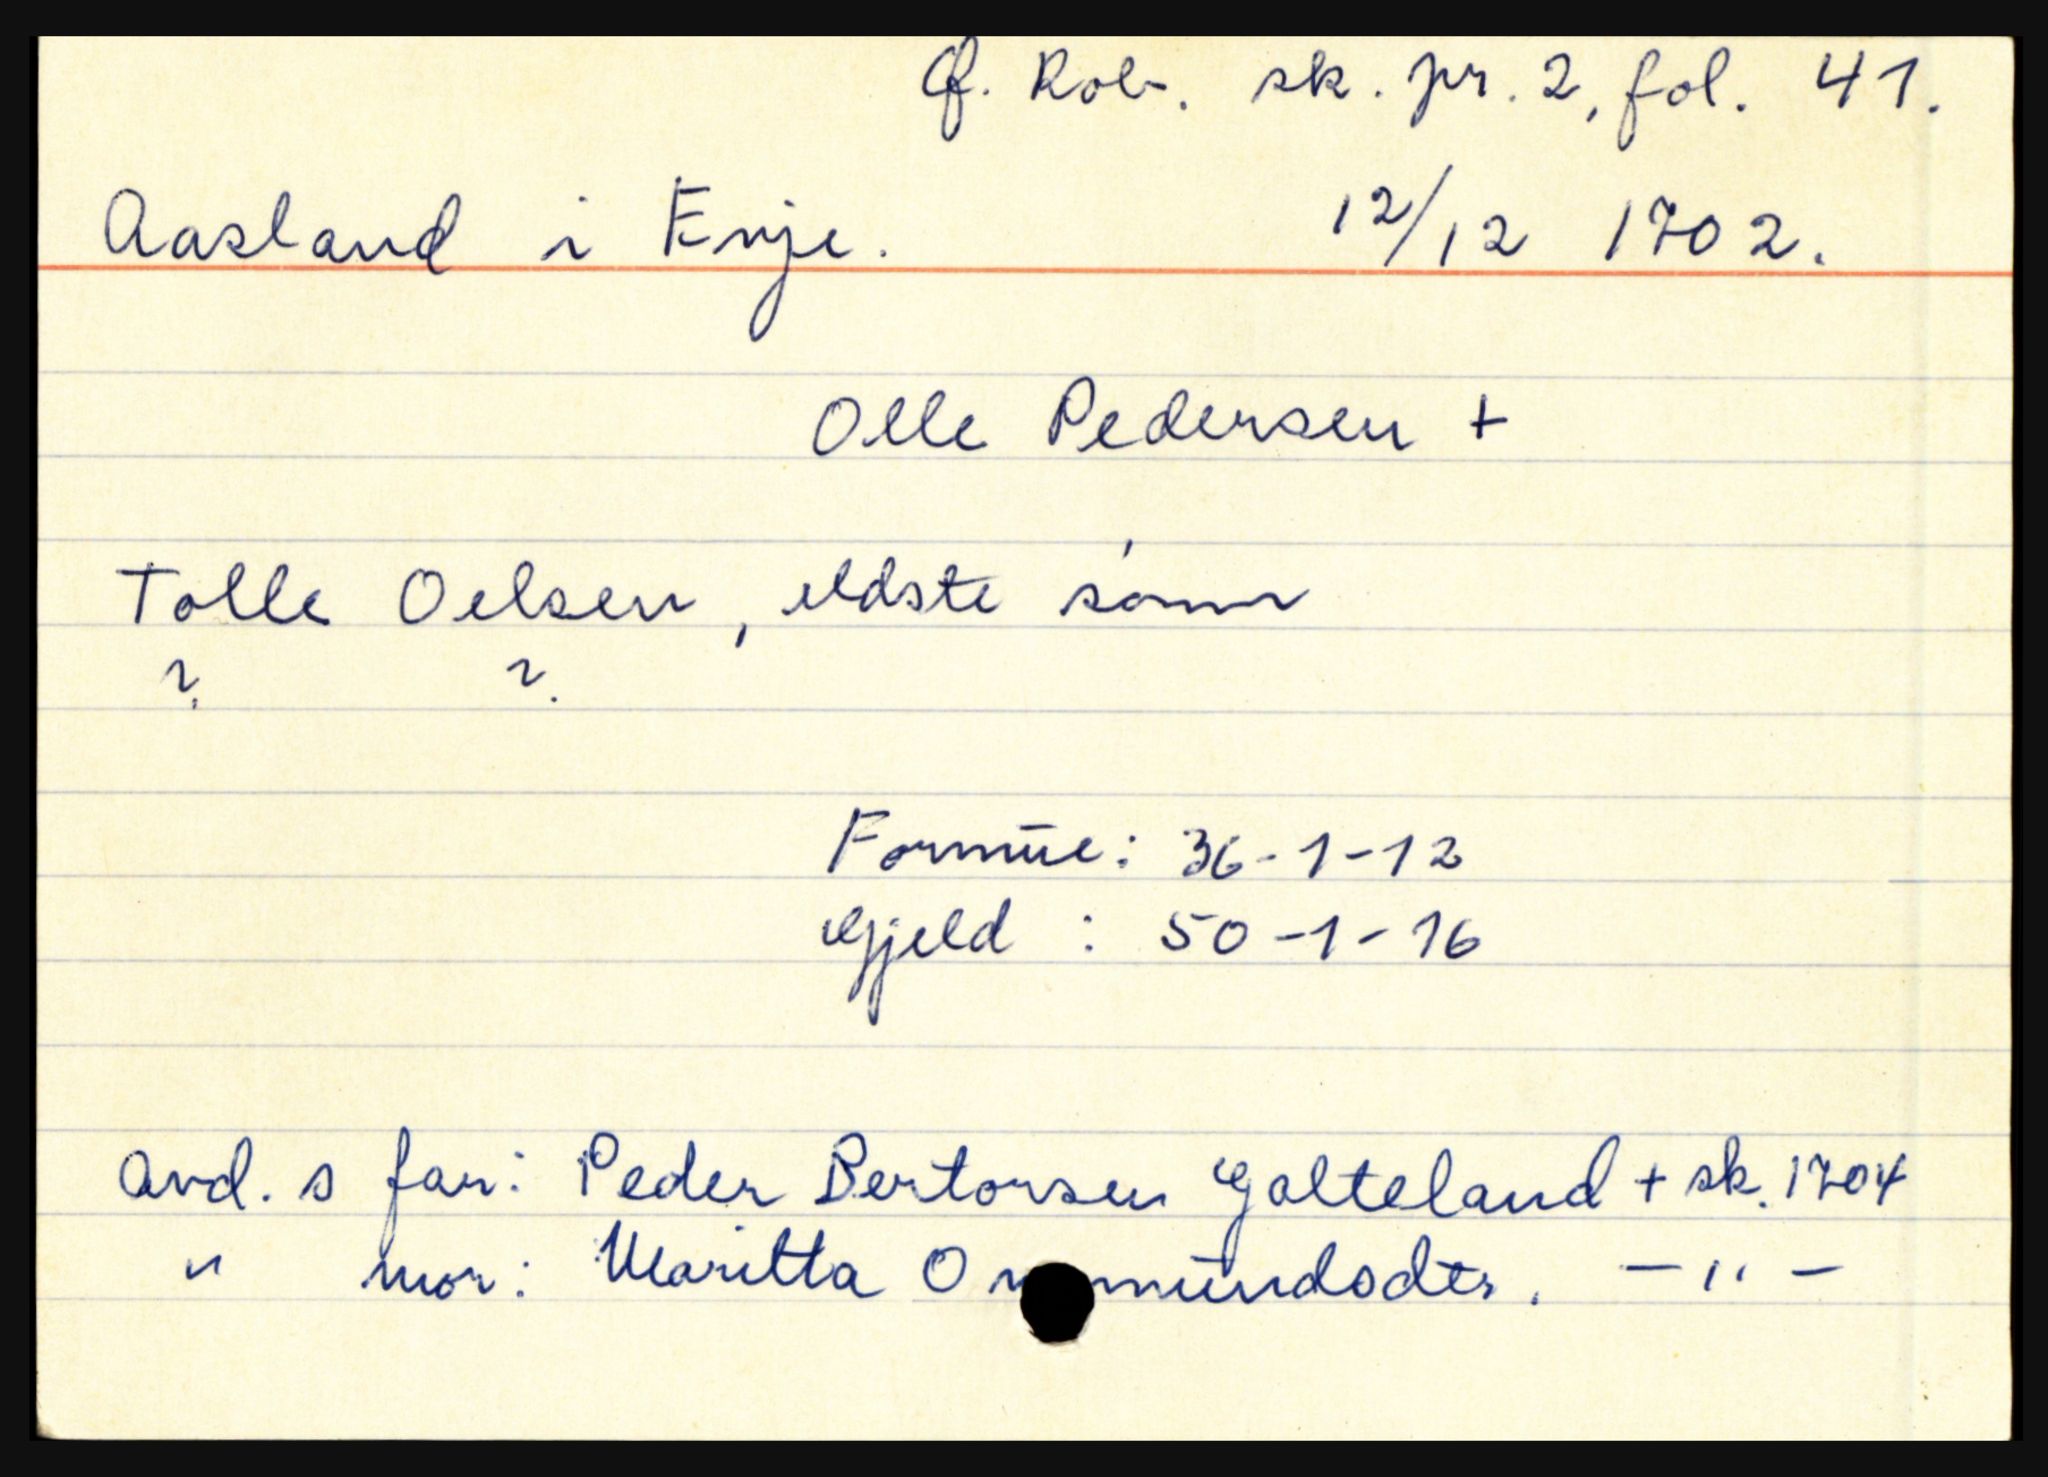 Q. Rob. sk. pr. 2, fol. 41.
Aasland i Evje. 12/12 1702.
Olle Pedersen +
Tolle Oelsen, eldste sønn
? ?
Formŭe: 36-1-12
Gjeld : 50-1-16
Avd. s far: Peder Bertorsen Galteland + sk. 1704
" mor: Maritta . — " —